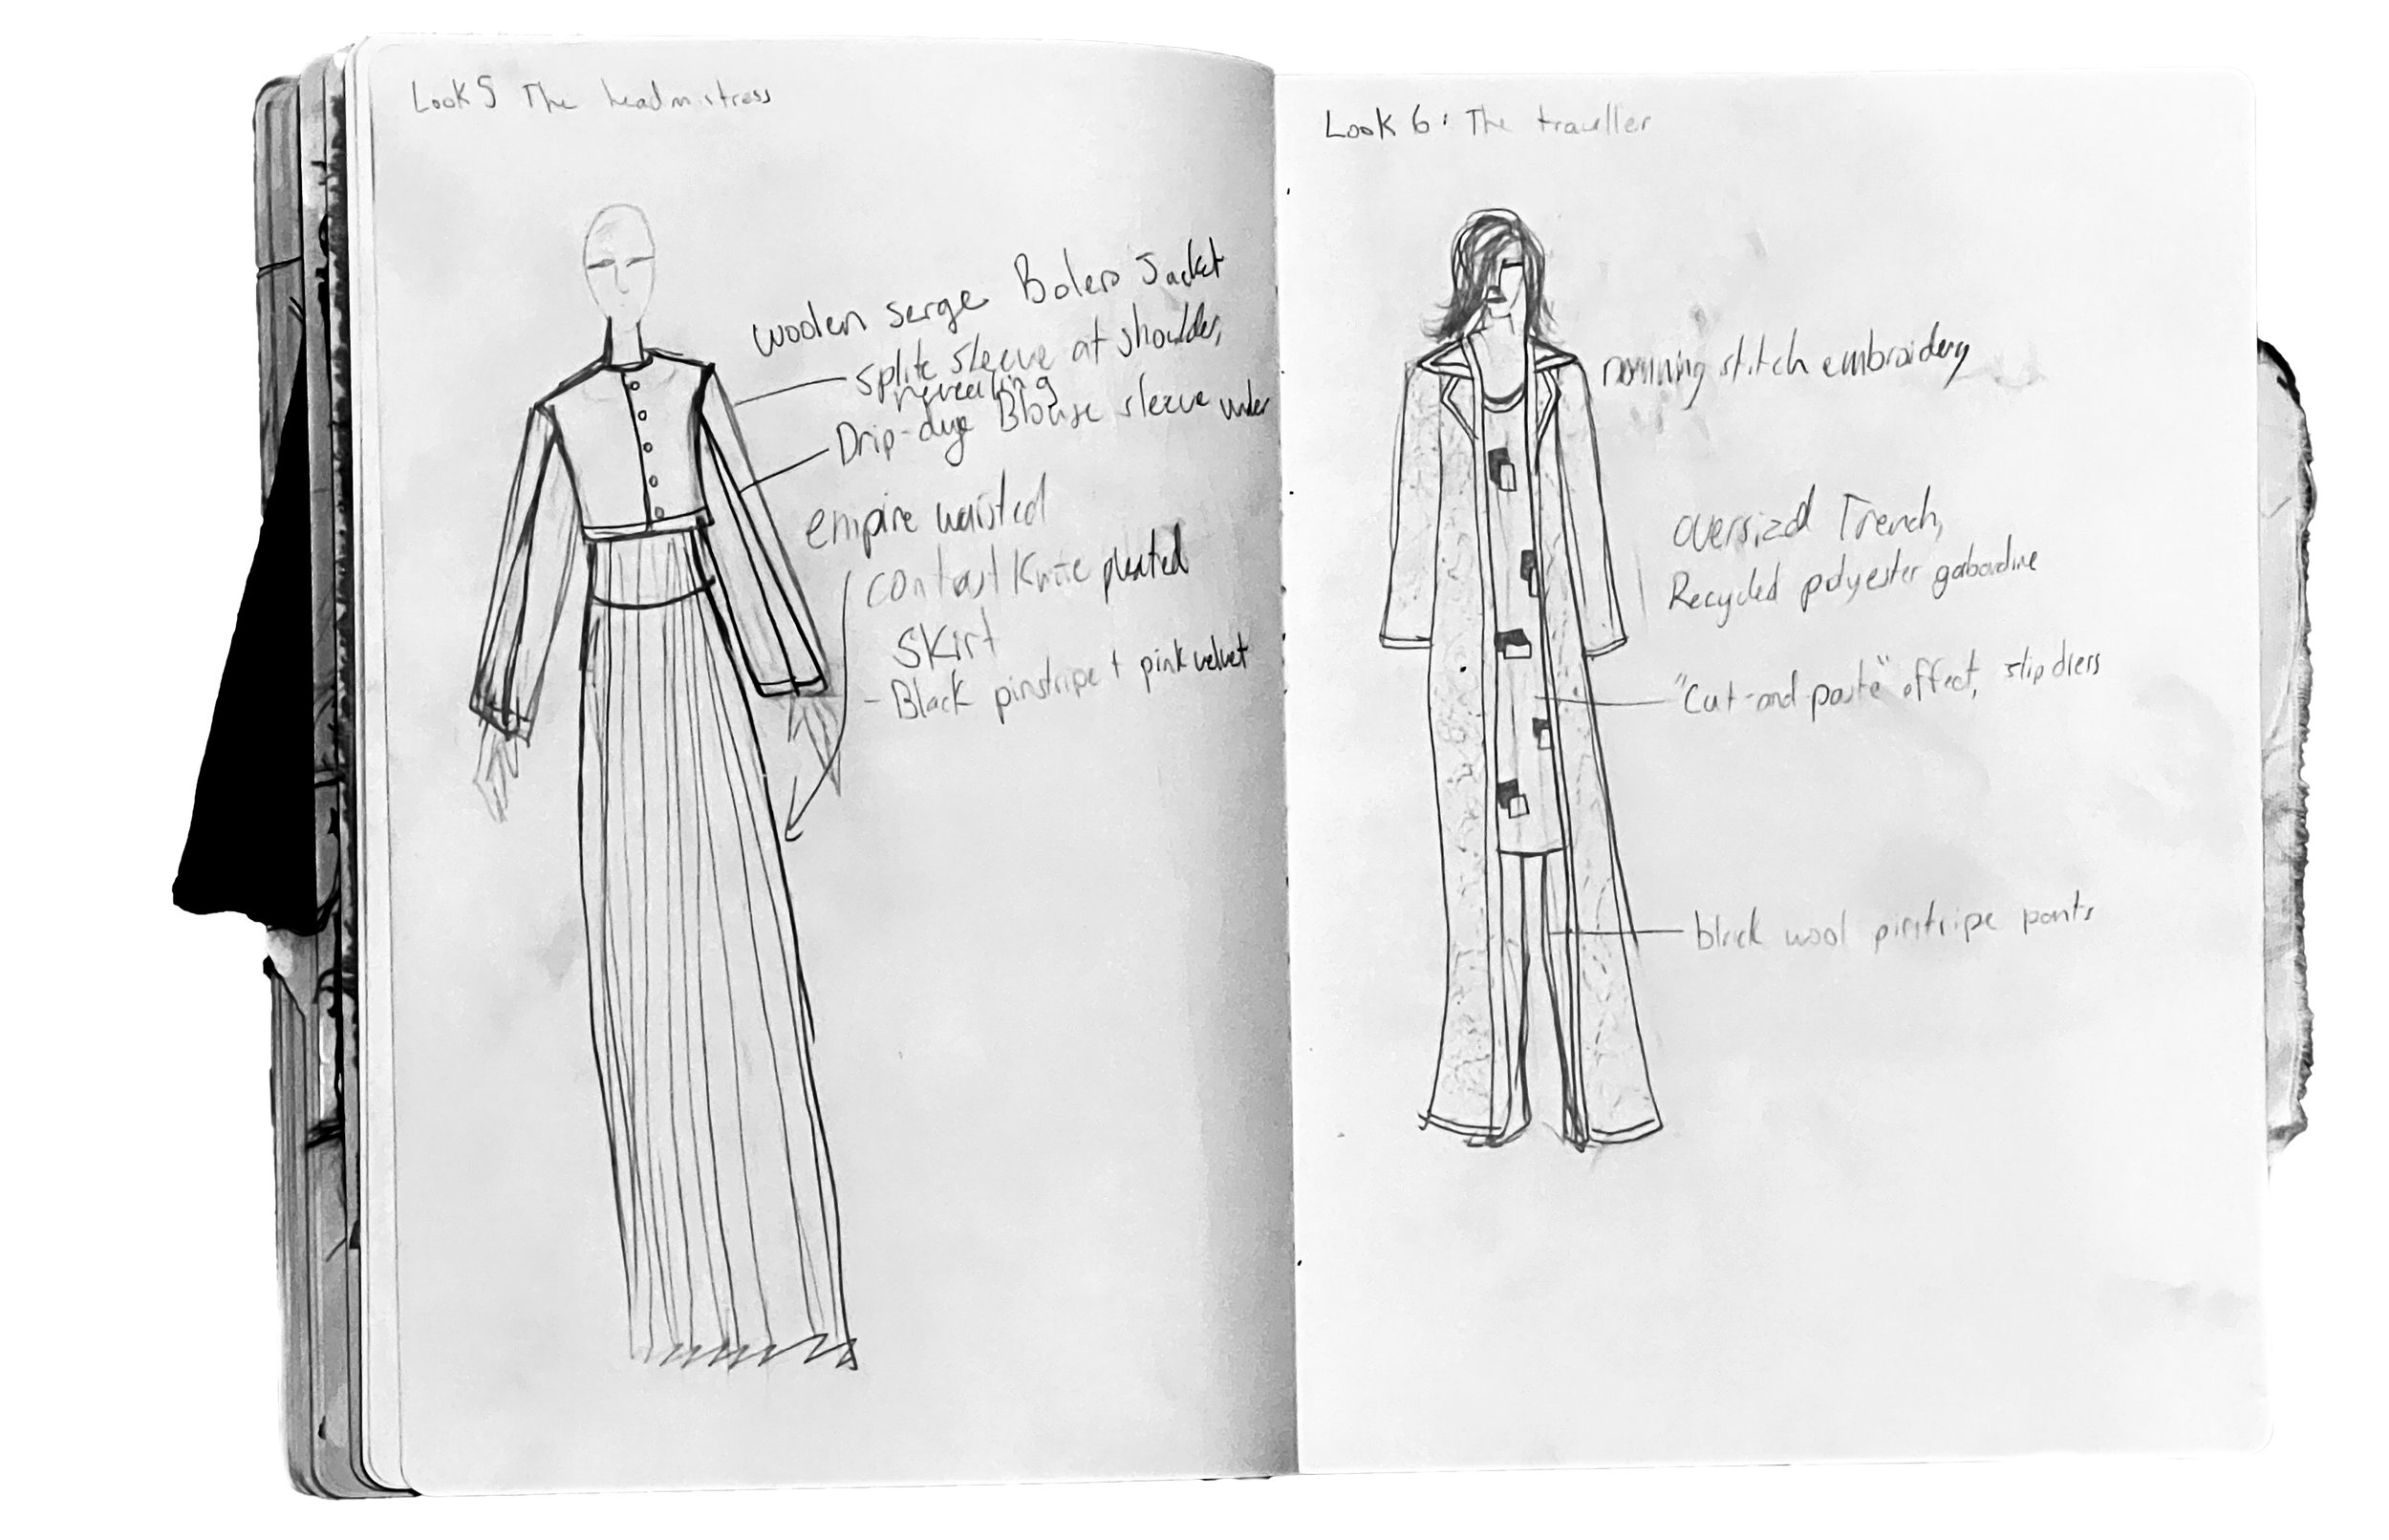 Look 5 The headmistress
woolen serge Bolero Jacket
splite sleeve at shoulder,
revealing
Drip-dye Blouse sleeve under
empire waisted
contrast Knife pleated
skirt
- Black pinstripe + pink velvet
Look 6: The traveller
running stitch embroidery
oversized Trench,
Recycled polyester gabardine
"Cut-and-paste" effect, slip dress
black wool pinstripe pants